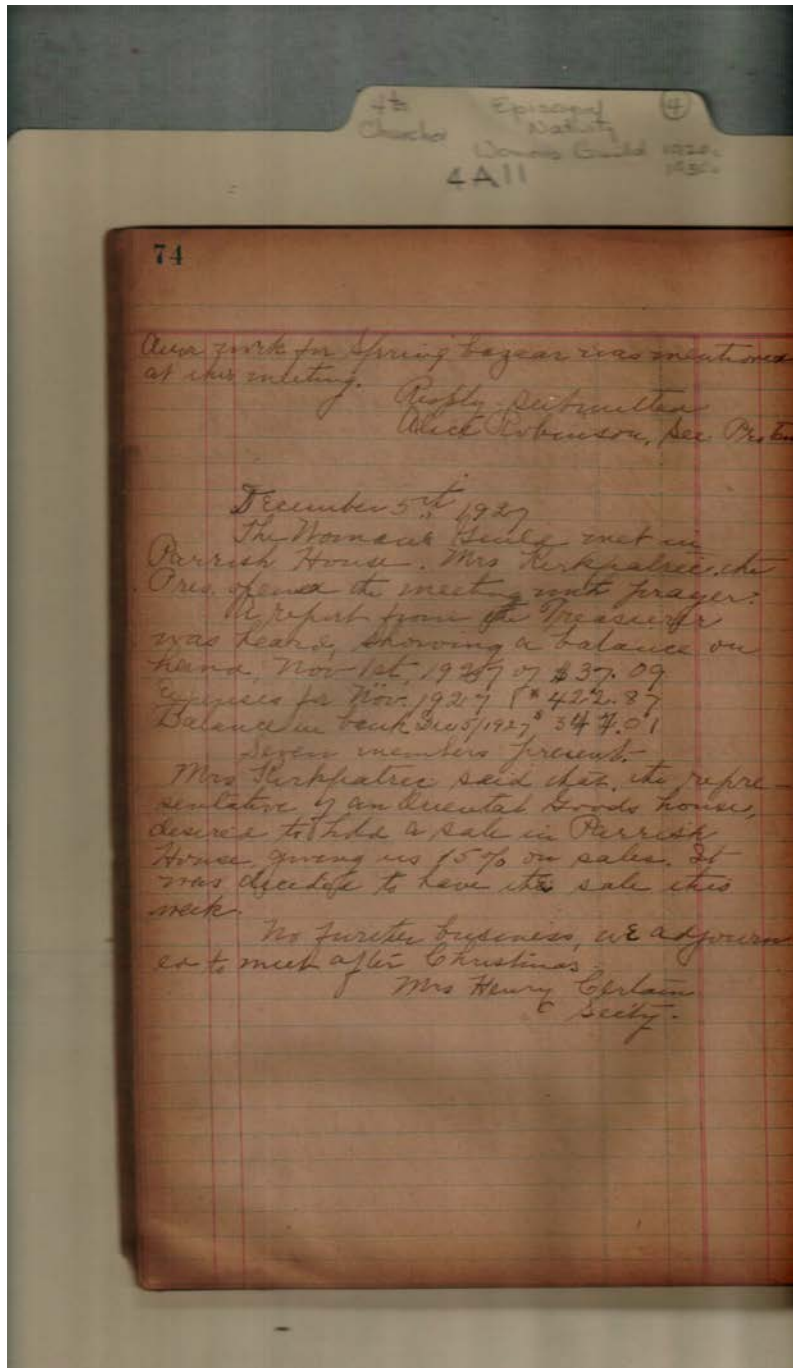 4th Episcopal (4)
Churches Nativity
Womens Guild 1920s
1930s
4A11
74
work for Spring bazaar was mentioned
at this meeting.
Respty submitted
Alice Robinson, Sec Protem
December 5th 1927
The Womans Guild met in
Parrish House. Mrs Kirkpatric, the
Pres. opened the meeting with prayer.
A report from the Treasurer
was heard, showing a balance on
hand, Nov 1st, 1927 of $37.09
Expenses for Nov. 1927 $422.87
Balance in bank Dec 5/1927 $ 344.01
Seven members present.
Mrs Kirkpatric said that, the repre-
sentative of an Oriental Goods house,
desired to hold a sale in Parrish
House, giving us 15% on sales. It
was decided to have the sale this
week.
No further business, we adjourn
ed to meet after Christmas.
Mrs Henry Certain
Secty.